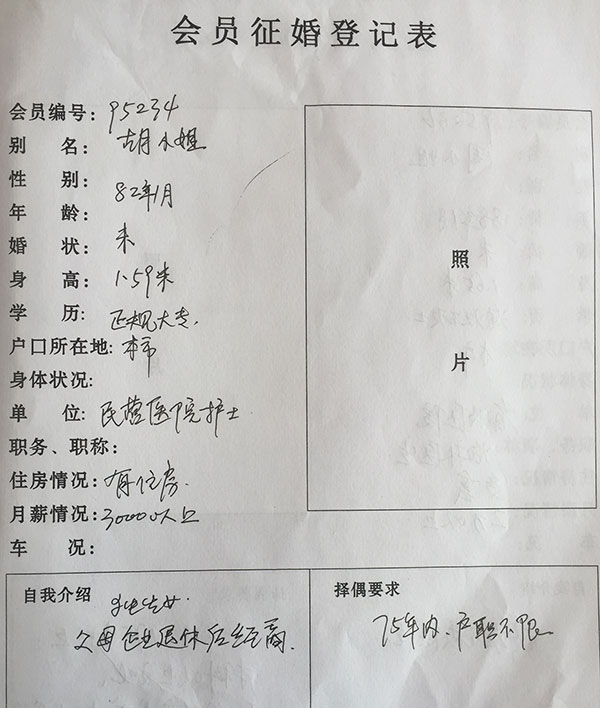 会员征婚登记表
会员编号: 95234
别 名: 胡小姐
性 别:
年 龄: 82年1月
婚 状: 未
身 高: 1.59米
学 历: 正规大专.
户口所在地: 本市
身体状况:
单 位: 民营医院护士
职务、职称:
住房情况: 有住房.
月薪情况: 3000以上
车 况:
照
片
自我介绍 独生女.
父母企业退休后经商.
择偶要求
75年内、户职不限.